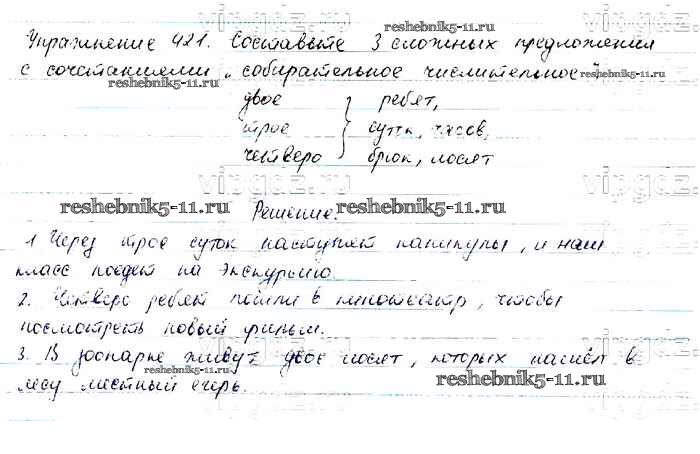 Упражнение 421. Составьте 3 сложных предложения
с сочетаниями „собирательное числительное"
двое ребят,
трое суток, часов,
четверо брюк, лосят
Решение.
1 Через трое суток наступят каникулы, и наш
класс поедет на экскурсию.
2. Четверо ребят пошли в кинотеатр, чтобы
посмотреть новый фильм.
3. В зоопарке живут двое лосят, которых нашёл в
лесу местный егерь.
reshebnik5-11.ru
reshebnik5-11.ru
reshebnik5-11.ru
reshebnik5-11.ru
reshebnik5-11.ru
reshebnik5-11.ru
reshebnik5-11.ru
vipgdz.ru